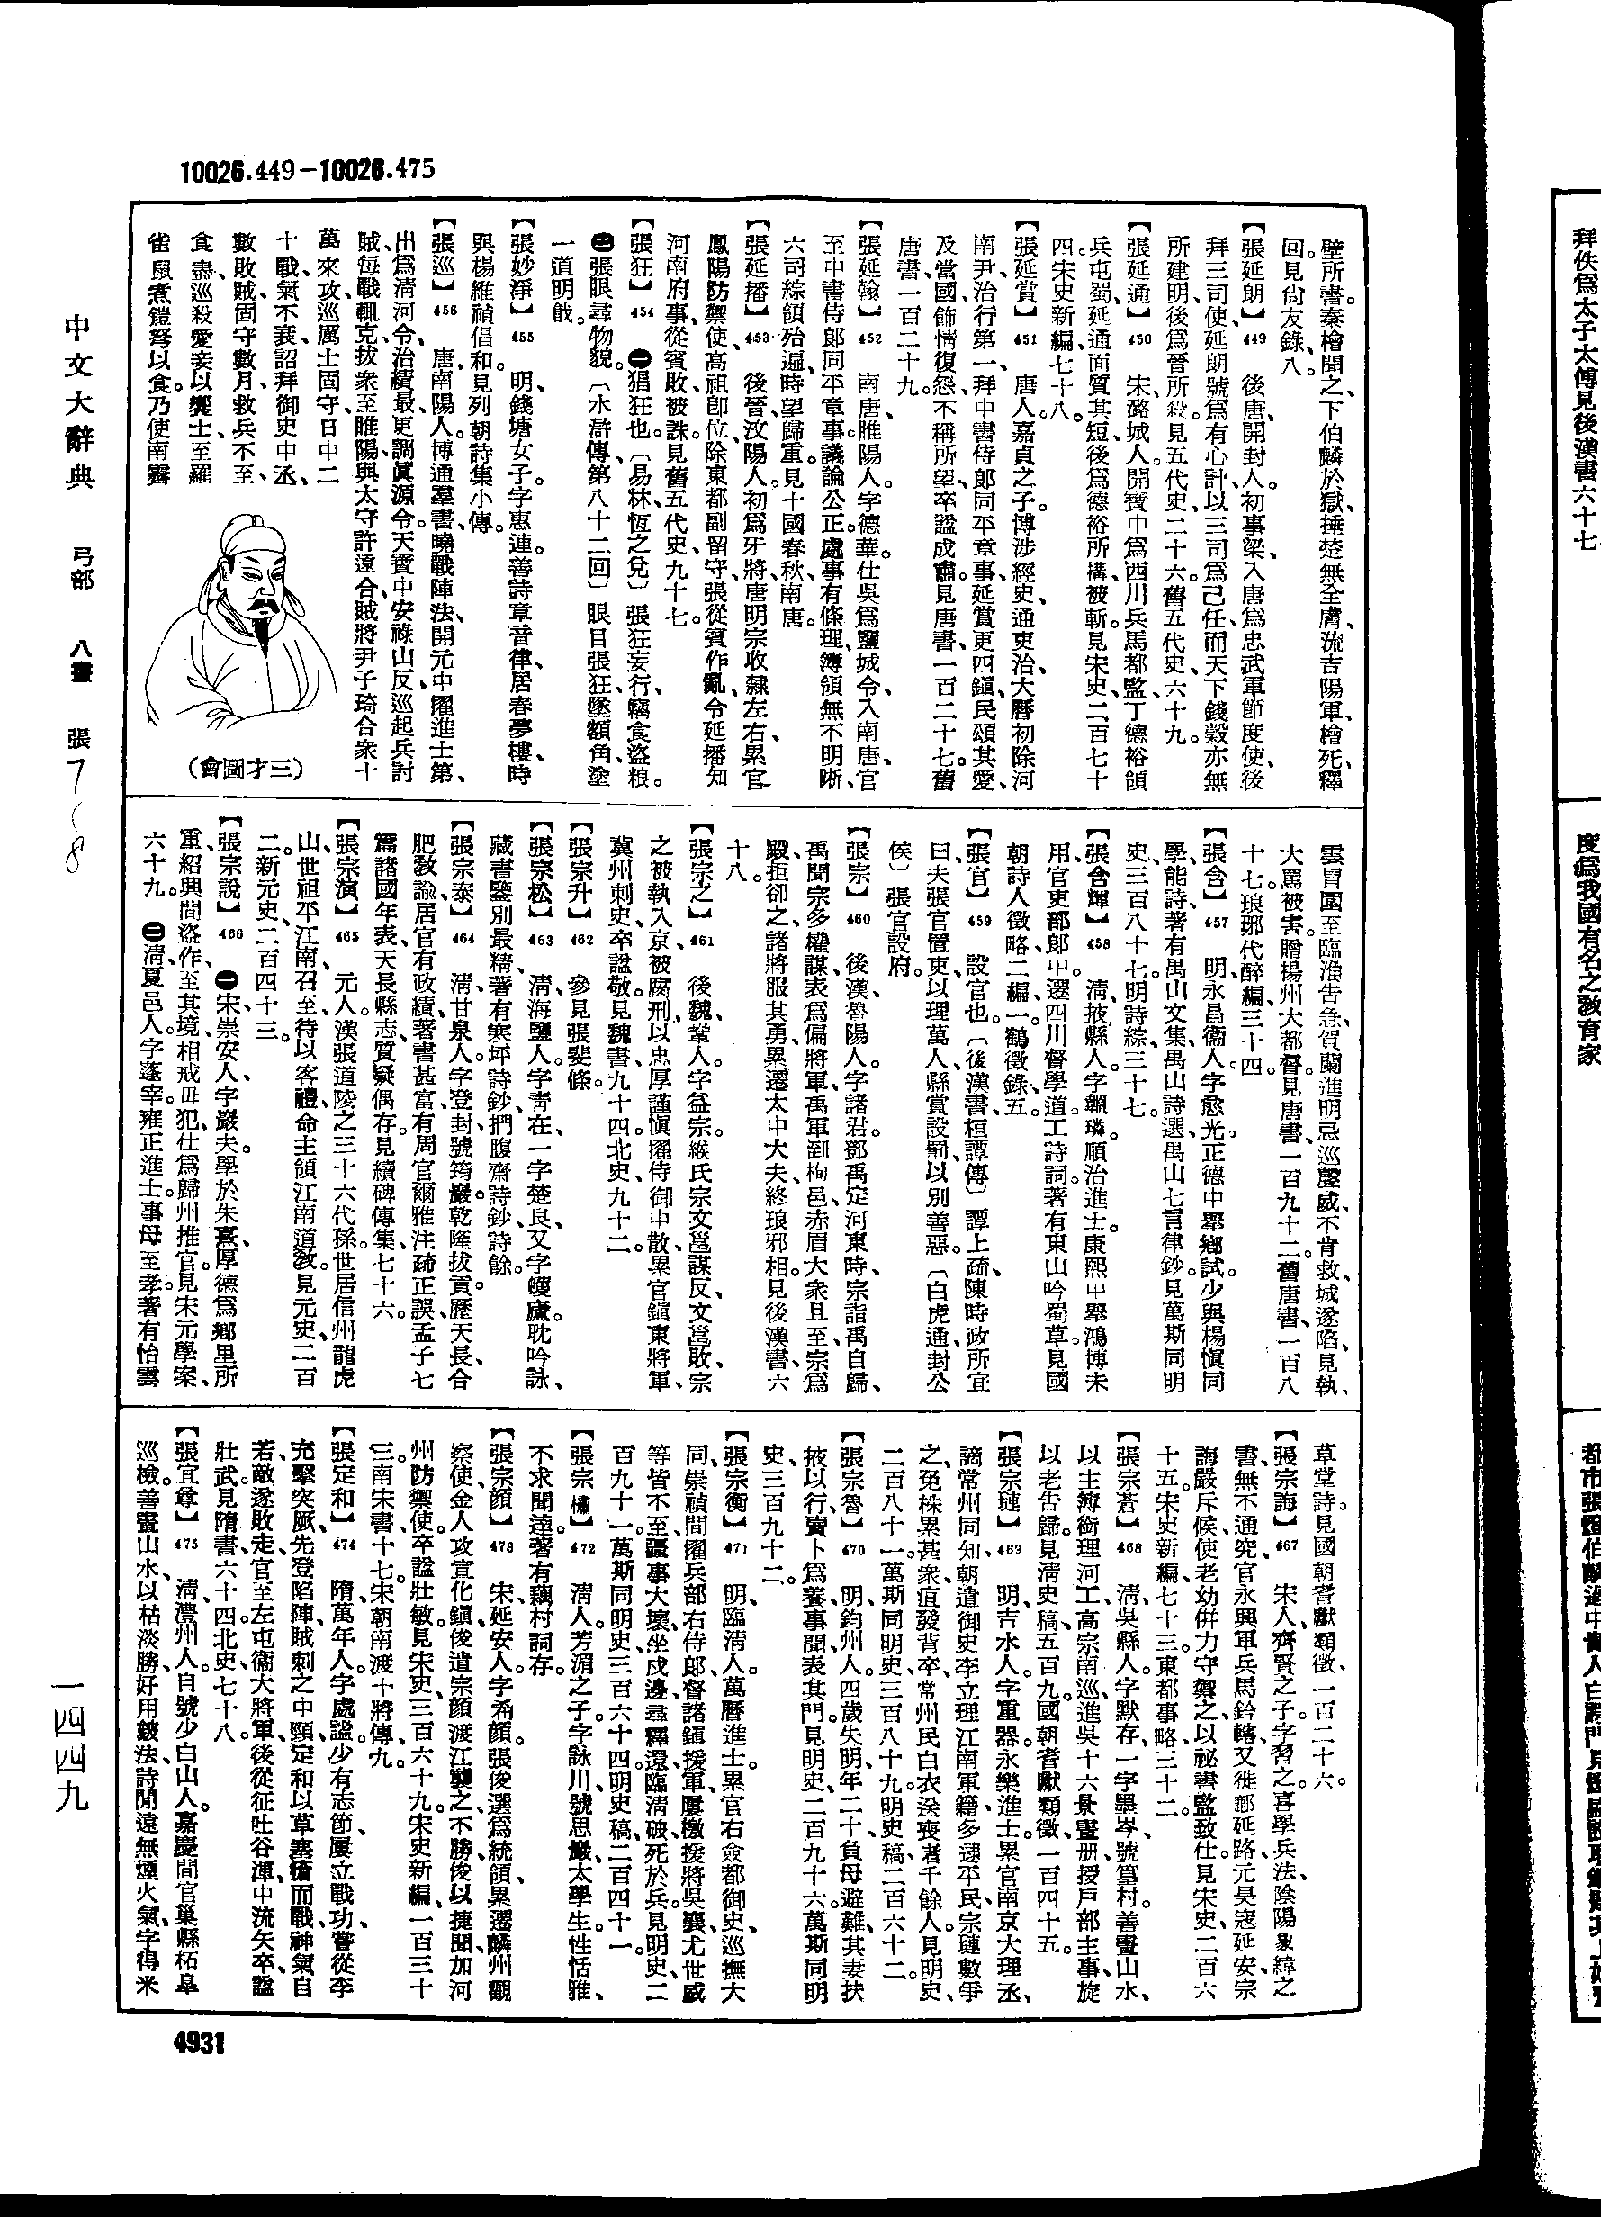 10026.449－10026.475
壁所書。秦檜聞之、下伯麟於獄、捶楚無全膚、流吉陽軍、檜死、釋
回。見尙友錄、八。
【張延朗】449 後唐、開封人。初事梁、入唐爲忠武軍節度使、後
拜三司使、延朗號爲有心計、以三司爲己任、而天下錢穀亦無
所建明、後爲晉所殺。見五代史、二十六。舊五代史、六十九。
【張延通】450 宋、潞城人。開寶中爲西川兵馬都監、丁德裕領
兵屯蜀、延通面質其短、後爲德裕所構、被斬。見宋史、二百七十
四。宋史新編、七十八。
【張延賞】451 唐人。嘉貞之子。博涉經史、通吏治、大曆初除河
南尹、治行第一、拜中書侍郞同平章事、延賞更四鎭、民頌其愛、
及當國、飾情復怨、不稱所望、卒諡成肅。見唐書、一百二十七。舊
唐書、一百二十九。
【張延翰】452 南唐、睢陽人。字德華。仕吳爲鹽城令、入南唐、官
至中書侍郞同平章事、議論公正。處事有條理、簿領無不明晰、
六司綜領殆遍、時望歸重。見十國春秋、南唐。
【張延播】453 後晉、汶陽人。初爲牙將、唐明宗收隸左右、累官
鳳陽防禦使、高祖卽位、除東都副留守、張從賓作亂、令延播知
河南府事、從賓敗、被誅。見舊五代史、九十七。
【張狂】454 ㊀猖狂也。〔易林、恆之兌〕張狂妄行、竊食盜粮。
㊁張眼尋物貌。〔水滸傳、第八十二回〕眼目張狂、墜額角、塗
一道明戧。
【張妙淨】455 明、錢塘女子。字惠連。善詩章音律、居春夢樓、時
與楊維禎倡和。見列朝詩集小傳。
【張巡】456 唐、南陽人。博通羣書、曉戰陣法、開元中擢進士第、
出爲淸河令、治績最、更調眞源令。天寶中、安祿山反、巡起兵討
賊、每戰輒克、拔衆至睢陽、與太守許遠合、賊將尹子琦合衆十
萬來攻、巡厲士固守、日中二
十戰、氣不衰、詔拜御史中丞、
數敗賊、固守數月、救兵不至、
食盡、巡殺愛妾以饗士、至羅
雀鼠、煮鎧弩以食。乃使南霽
（三才圖會）
雲冒圍至臨淮告急、賀蘭進明忌巡聲威、不肯救、城遂陷、見執、
大罵被害。贈揚州大都督。見唐書、一百九十二。舊唐書、一百八
十七。琅邪代醉編、三十四。
【張含】457 明、永昌衞人。字愈光。正德中舉鄕試、少與楊愼同
學、能詩、著有禺山文集、禺山詩選、禺山七言律鈔。見萬斯同明
史、三百八十七。明詩綜、三十七。
【張含輝】458 淸、掖縣人。字韞璘。順治進士。康熙中舉鴻博未
用、官吏部郞中。選四川督學道、工詩詞。著有東山吟、蜀草。見國
朝詩人徵略二編、一。鶴徵錄、五。
【張官】459 設官也。〔後漢書、桓譚傳〕譚上疏、陳時政所宜
曰、夫張官置吏、以理萬人、縣賞設罰、以別善惡。〔白虎通、封公
侯〕張官設府。
【張宗】460 後漢、魯陽人。字諸君。鄧禹定河東時、宗詣禹自歸、
禹聞宗多權謀、表爲偏將軍、禹軍到栒邑、赤眉大衆且至、宗爲
殿、拒卻之、諸將服其勇。累遷太中大夫、終琅邪相。見後漢書、六
十八。
【張宗之】461 後魏、鞏人。字益宗。緱氏宗文邕謀反、文邕敗、宗
之被執入京、被腐刑、以忠厚謹愼、擢侍御中散、累官鎭東將軍、
冀州刺史、卒諡敬。見魏書、九十四。北史、九十二。
【張宗升】462 參見張斐條。
【張宗松】463 淸、海鹽人。字靑在、一字楚良、又字蠖廬。耽吟詠、
藏書鑒別最精、著有寒坪詩鈔、捫腹齋詩鈔、詩餘。
【張宗泰】464 淸、甘泉人。字登封、號筠巖。乾隆拔貢。歷天長、合
肥敎諭、居官有政績、著書甚富、有周官爾雅注疏正誤、孟子七
篇諸國年表、天長縣志、質疑偶存。見續碑傳集、七十六。
【張宗演】465 元人。漢張道陵之三十六代孫。世居信州龍虎
山、世祖平江南、召至、待以客禮、命主領江南道敎。見元史、二百
二。新元史、二百四十三。
【張宗說】466 ㊀宋、崇安人。字巖夫。學於朱熹、厚德爲鄕里所
重、紹興間盜作、至其境、相戒毋犯、仕爲歸州推官。見宋元學案、
六十九。㊁淸、夏邑人。字蓬宰。雍正進士。事母至孝。著有怡雲
草堂詩。見國朝耆獻類徵、一百二十六。
【張宗誨】467 宋人。齊賢之子。字習之。喜學兵法、陰陽、象緯之
書、無不通究、官永興軍兵馬鈐轄、又徙鄜延路、元昊寇延安、宗
誨嚴斥候、使老幼併力守禦之、以祕書監致仕。見宋史、二百六
十五。宋史新編、七十三。東都事略、三十二。
【張宗蒼】468 淸、吳縣人。字默存、一字墨岑、號篁村。善畫山水、
以主簿銜理河工、高宗南巡、進吳十六景畫册、授戶部主事、旋
以老告歸。見淸史稿、五百九。國朝耆獻類徵、一百四十五。
【張宗璉】469 明、吉水人。字重器。永樂進士。累官南京大理丞、
謫常州同知、朝遣御史李立理江南軍籍、多逮平民、宗璉數爭
之、免株累甚衆、疽發背卒、常州民白衣送喪者千餘人。見明史、
二百八十一。萬斯同明史、三百八十九。明史稿、二百六十二。
【張宗魯】470 明、鈞州人。四歲失明、年二十、負母避難、其妻扶
掖以行、賣卜爲養、事聞、表其門。見明史、二百九十六。萬斯同明
史、三百九十二。
【張宗衡】471 明、臨淸人。萬曆進士。累官右僉都御史、巡撫大
同、崇禎間擢兵部右侍郞、督諸鎭援軍、屢檄援將吳襄、尤世威
等皆不至、疆事大壞、坐戍邊、尋釋還、臨淸破、死於兵。見明史、二
百九十一。萬斯同明史、三百六十四。明史稿、二百四十一。
【張宗橚】472 淸人。芳湄之子。字詠川、號思巖、太學生。性恬雅、
不求聞達、著有藕村詞存。
【張宗顏】473 宋、延安人。字希顏。張俊選爲統領、累遷麟州觀
察使、金人攻宣化鎭、俊遣宗顏渡江襲之、不勝、俊以捷聞、加河
州防禦使。卒諡壯敏。見宋史、三百六十九。宋史新編、一百三十
三。南宋書、十七。宋朝南渡十將傳、九。
【張定和】474 隋、萬年人。字處謐。少有志節、屢立戰功、嘗從李
充擊突厥、先登陷陣、賊刺之中頸、定和以草塞創而戰、神氣自
若、敵遂敗走、官至左屯衞大將軍、後從征吐谷渾、中流矢卒、諡
壯武。見隋書、六十四。北史、七十八。
【張宜尊】475 淸、澧州人。自號少白山人。嘉慶間官巢縣柘皋
巡檢。善畫山水、以枯淡勝、好用皴法、詩閒遠無煙火氣、字得米
4931
中文大辭典　弓部　八畫　張 7〜8
一四四九
拜佚爲太子太傅見後漢書六十七
度爲我國有名之敎育家